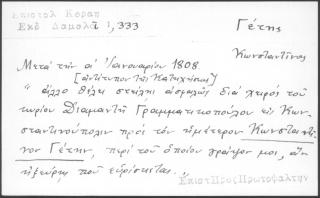 Ἐπιστολ Κοραη
Ἐκδ Δαμαλᾶ 1,333
Γέτης
Κωνσταντῖνος
Μετά τήν 01 Ἰανουαρίου 1808.
[ἀντίτυπον τῆς Κατηχήσεως]
" ἄλλο θέλει στείλῃ ἀσφαλῶς διά χειρός τοῦ
κυρίου Διαμαντῆ Γραμματικοπούλου εἰς Κων-
σταντινούπολιν πρός τόν ἡμέτερον Κωνσταντῖ
νον Γέτην, περί τοῦ ὁποίου γράψον μοι, ἄν
ἠξεύρῃς ποῦ εὑρίσκεται.
ΕπιστΠροςΠρωτοψαλτην